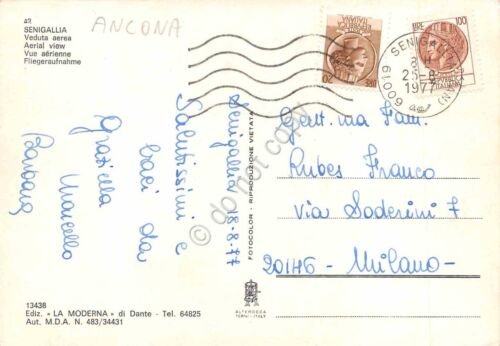 ANCONA
42
SENIGALLIA
Veduta aerea
Aerial view
Vue aérienne
Fliegeraufnahme
Senigallia 18.8.77
Salutissimi e
baci da
Graziella
Marcello
Barbara
13438
Ediz. « LA MODERNA » di Dante - Tel. 64825
Aut. M.D.A. N. 483/34431
FOTOCOLOR - RIPRODUZIONE VIETATA
ALTEROCCA
TERNI - ITALY
100
60019 SENIGALLIA (AN)
25-8
1977
Gent.ma Fam.
Rubes Franco
Via Soderini 7
20146 - Milano -
do not copy